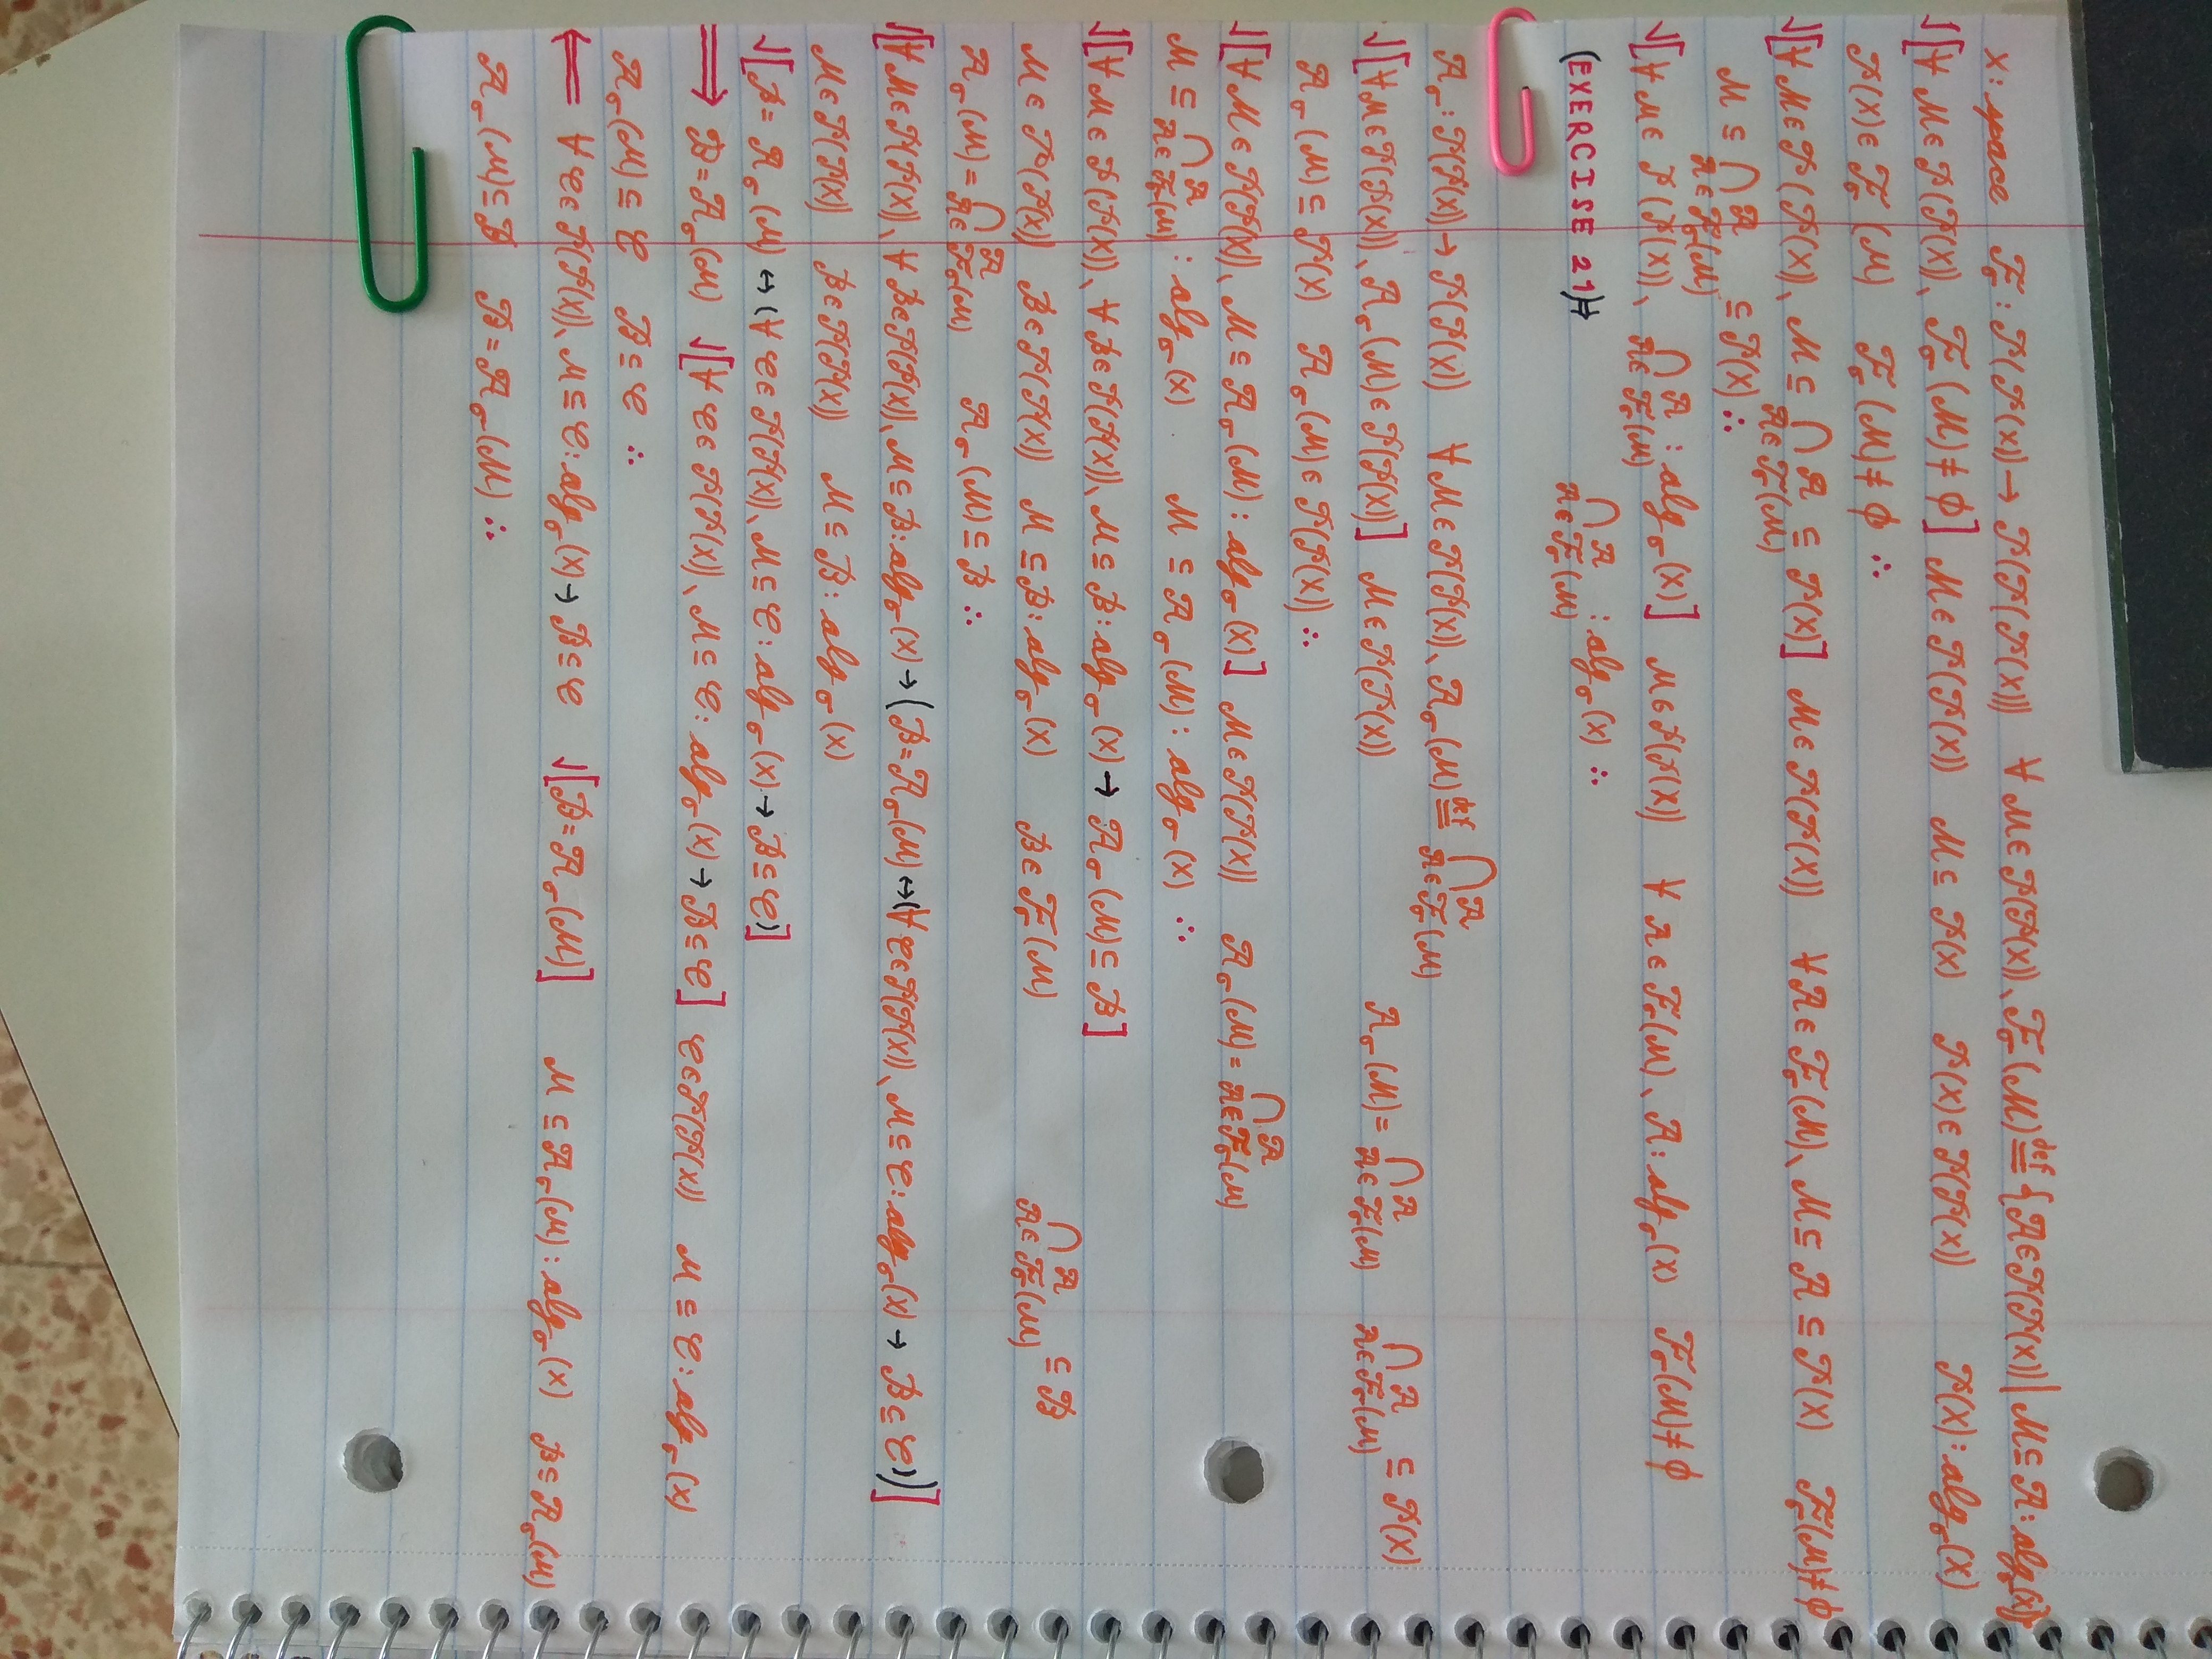 X: space   ℱσ : 𝒫(𝒫(X)) → 𝒫(𝒫(𝒫(X)))   ∀ ℳ ∈ 𝒫(𝒫(X))、ℱσ(ℳ) ≝ {𝒜 ∈ 𝒫(𝒫(X)) | ℳ ⊆ 𝒜 : algσ(X)}
√[∀ ℳ ∈ 𝒫(𝒫(X))、ℱσ(ℳ) ≠ ϕ]  ℳ ∈ 𝒫(𝒫(X))  ℳ ⊆ 𝒫(X)  𝒫(X) ∈ 𝒫(𝒫(X))  𝒫(X) : algσ(X)
𝒫(X) ∈ ℱσ(ℳ)   ℱσ(ℳ) ≠ ϕ ∴
√[∀ ℳ ∈ 𝒫(𝒫(X))、ℳ ⊆ ⋂_{𝒜 ∈ ℱσ(ℳ)} 𝒜 ⊆ 𝒫(X)]  ℳ ∈ 𝒫(𝒫(X))  ∀ 𝒜 ∈ ℱσ(ℳ)、ℳ ⊆ 𝒜 ⊆ 𝒫(X)  ℱσ(ℳ) ≠ ϕ
ℳ ⊆ ⋂_{𝒜 ∈ ℱσ(ℳ)} 𝒜 ⊆ 𝒫(X) ∴
√[∀ ℳ ∈ 𝒫(𝒫(X))、⋂_{𝒜 ∈ ℱσ(ℳ)} 𝒜 : algσ(X)]  ℳ ∈ 𝒫(𝒫(X))  ∀ 𝒜 ∈ ℱσ(ℳ)、𝒜 : algσ(X)  ℱσ(ℳ) ≠ ϕ
(EXERCISE 21)⇒   ⋂_{𝒜 ∈ ℱσ(ℳ)} 𝒜 : algσ(X) ∴
𝒜σ : 𝒫(𝒫(X)) → 𝒫(𝒫(X))   ∀ ℳ ∈ 𝒫(𝒫(X))、𝒜σ(ℳ) ≝ ⋂_{𝒜 ∈ ℱσ(ℳ)} 𝒜
√[∀ ℳ ∈ 𝒫(𝒫(X))、𝒜σ(ℳ) ∈ 𝒫(𝒫(X))]  ℳ ∈ 𝒫(𝒫(X))  𝒜σ(ℳ) = ⋂_{𝒜 ∈ ℱσ(ℳ)} 𝒜  ⋂_{𝒜 ∈ ℱσ(ℳ)} 𝒜 ⊆ 𝒫(X)
𝒜σ(ℳ) ⊆ 𝒫(X)   𝒜σ(ℳ) ∈ 𝒫(𝒫(X)) ∴
√[∀ ℳ ∈ 𝒫(𝒫(X))、ℳ ⊆ 𝒜σ(ℳ) : algσ(X)]  ℳ ∈ 𝒫(𝒫(X))  𝒜σ(ℳ) = ⋂_{𝒜 ∈ ℱσ(ℳ)} 𝒜
ℳ ⊆ ⋂_{𝒜 ∈ ℱσ(ℳ)} 𝒜 : algσ(X)   ℳ ⊆ 𝒜σ(ℳ) : algσ(X) ∴
√[∀ ℳ ∈ 𝒫(𝒫(X))、∀ ℬ ∈ 𝒫(𝒫(X))、ℳ ⊆ ℬ : algσ(X) → 𝒜σ(ℳ) ⊆ ℬ]
ℳ ∈ 𝒫(𝒫(X))  ℬ ∈ 𝒫(𝒫(X))  ℳ ⊆ ℬ : algσ(X)  ℬ ∈ ℱσ(ℳ)  ⋂_{𝒜 ∈ ℱσ(ℳ)} 𝒜 ⊆ ℬ
𝒜σ(ℳ) = ⋂_{𝒜 ∈ ℱσ(ℳ)} 𝒜   𝒜σ(ℳ) ⊆ ℬ ∴
√[∀ ℳ ∈ 𝒫(𝒫(X))、∀ ℬ ∈ 𝒫(𝒫(X))、ℳ ⊆ ℬ : algσ(X) → (ℬ = 𝒜σ(ℳ) ↔ (∀ 𝒞 ∈ 𝒫(𝒫(X))、ℳ ⊆ 𝒞 : algσ(X) → ℬ ⊆ 𝒞))]
ℳ ∈ 𝒫(𝒫(X))   ℬ ∈ 𝒫(𝒫(X))   ℳ ⊆ ℬ : algσ(X)
√[ℬ = 𝒜σ(ℳ) ↔ (∀ 𝒞 ∈ 𝒫(𝒫(X))、ℳ ⊆ 𝒞 : algσ(X) → ℬ ⊆ 𝒞)]
⟹ ℬ = 𝒜σ(ℳ)  √[∀ 𝒞 ∈ 𝒫(𝒫(X))、ℳ ⊆ 𝒞 : algσ(X) → ℬ ⊆ 𝒞]  𝒞 ∈ 𝒫(𝒫(X))  ℳ ⊆ 𝒞 : algσ(X)
𝒜σ(ℳ) ⊆ 𝒞   ℬ ⊆ 𝒞 ∴
⟸ ∀ 𝒞 ∈ 𝒫(𝒫(X))、ℳ ⊆ 𝒞 : algσ(X) → ℬ ⊆ 𝒞  √[ℬ = 𝒜σ(ℳ)]  ℳ ⊆ 𝒜σ(ℳ) : algσ(X)  ℬ ⊆ 𝒜σ(ℳ)
𝒜σ(ℳ) ⊆ ℬ   ℬ = 𝒜σ(ℳ) ∴